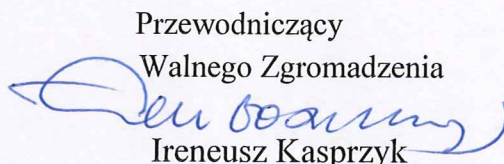 Przewodniczący
Walnego Zgromadzenia
Ireneusz Kasprzyk